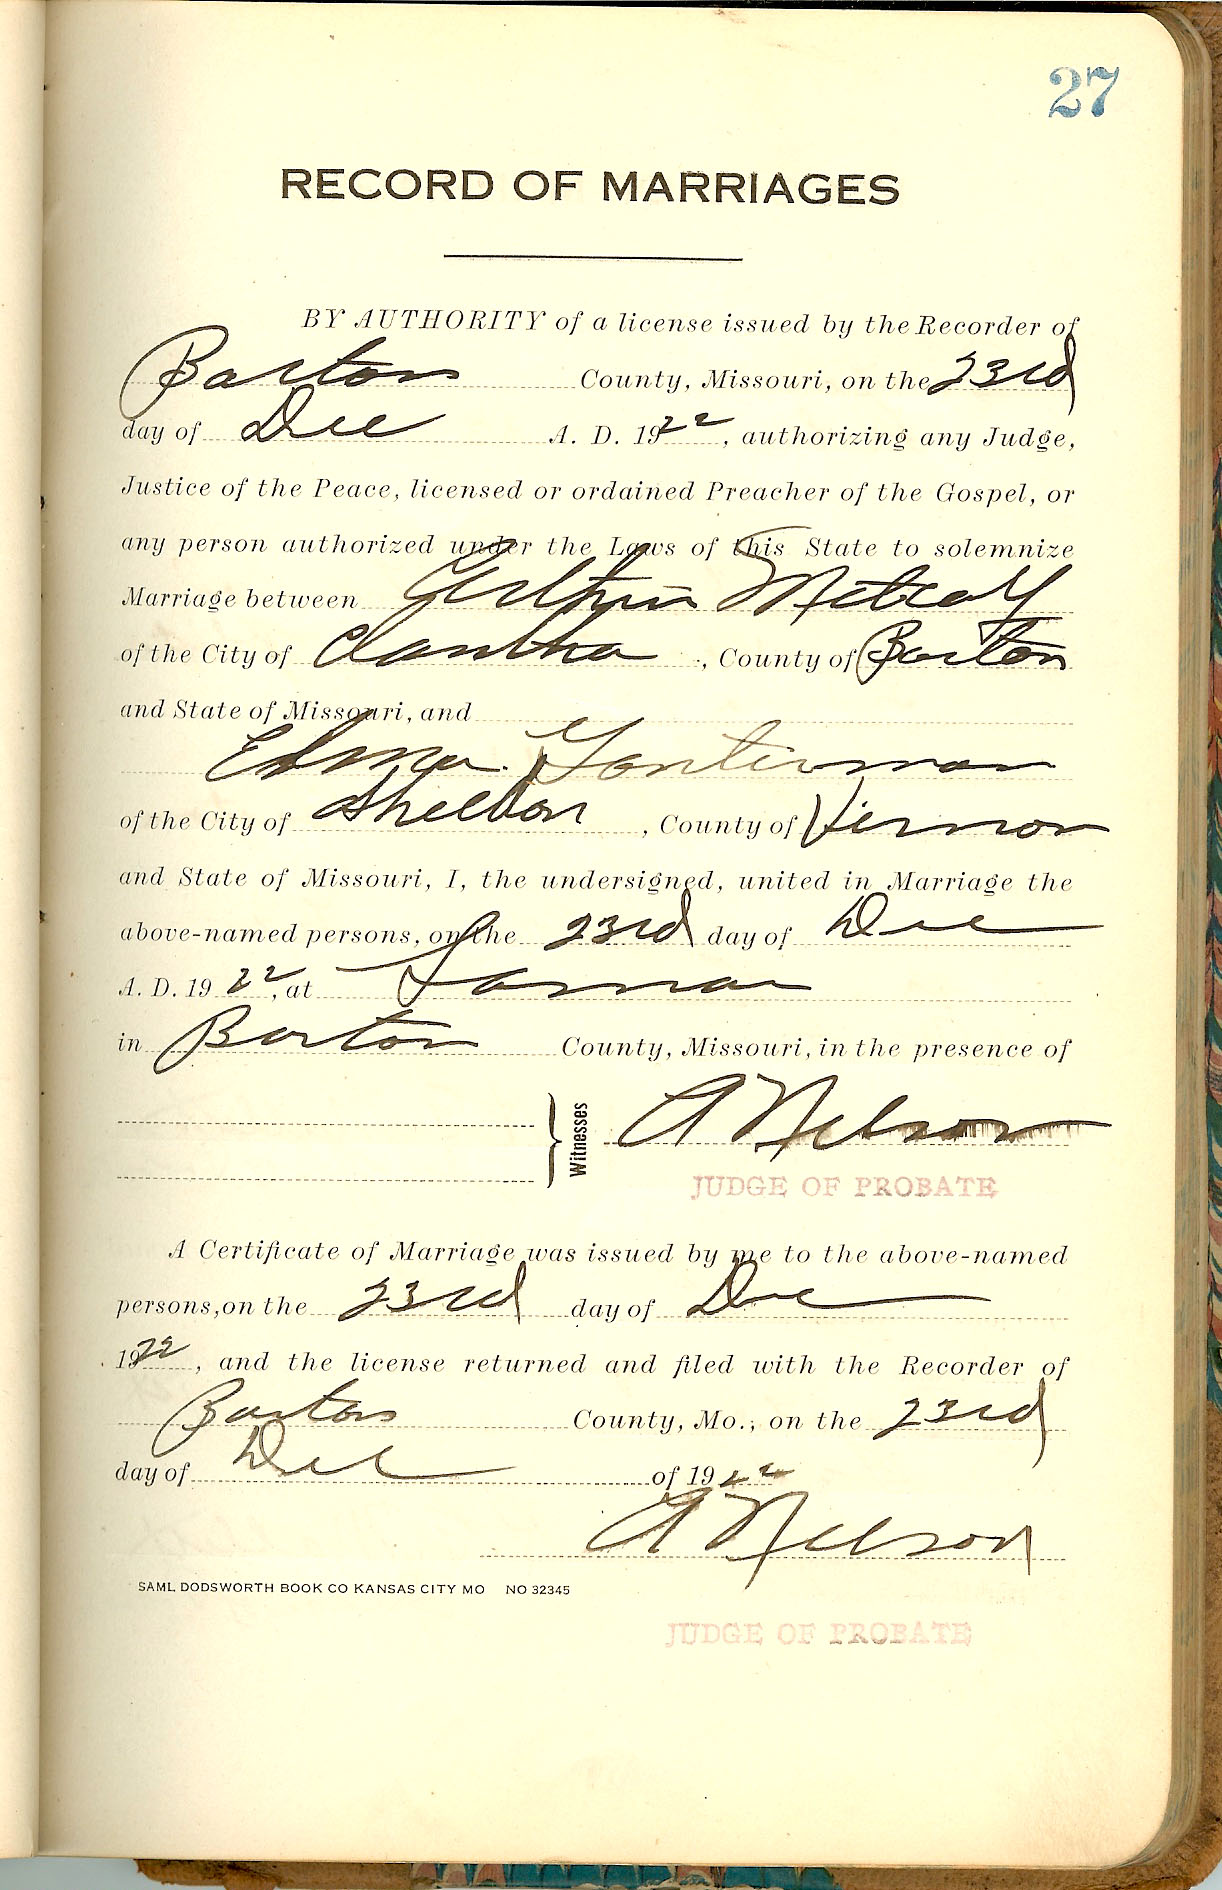 27
RECORD OF MARRIAGES
BY AUTHORITY of a license issued by the Recorder of
Barton County, Missouri, on the 23rd
day of Dec A. D. 1922, authorizing any Judge,
Justice of the Peace, licensed or ordained Preacher of the Gospel, or
any person authorized under the Laws of this State to solemnize
Marriage between Arthur Metcalf
of the City of , County of Barton
and State of Missouri, and
Edna
of the City of Sheldon, County of Vernon
and State of Missouri, I, the undersigned, united in Marriage the
above-named persons, on the 23rd day of Dec
A. D. 1922, at Lamar
in Barton County, Missouri, in the presence of
Witnesses A Nelson
JUDGE OF PROBATE
A Certificate of Marriage was issued by me to the above-named
persons, on the 23rd day of Dec
1922, and the license returned and filed with the Recorder of
Barton County, Mo., on the 23rd
day of Dec of 1922
A Nelson
SAML DODSWORTH BOOK CO KANSAS CITY MO NO 32345
JUDGE OF PROBATE